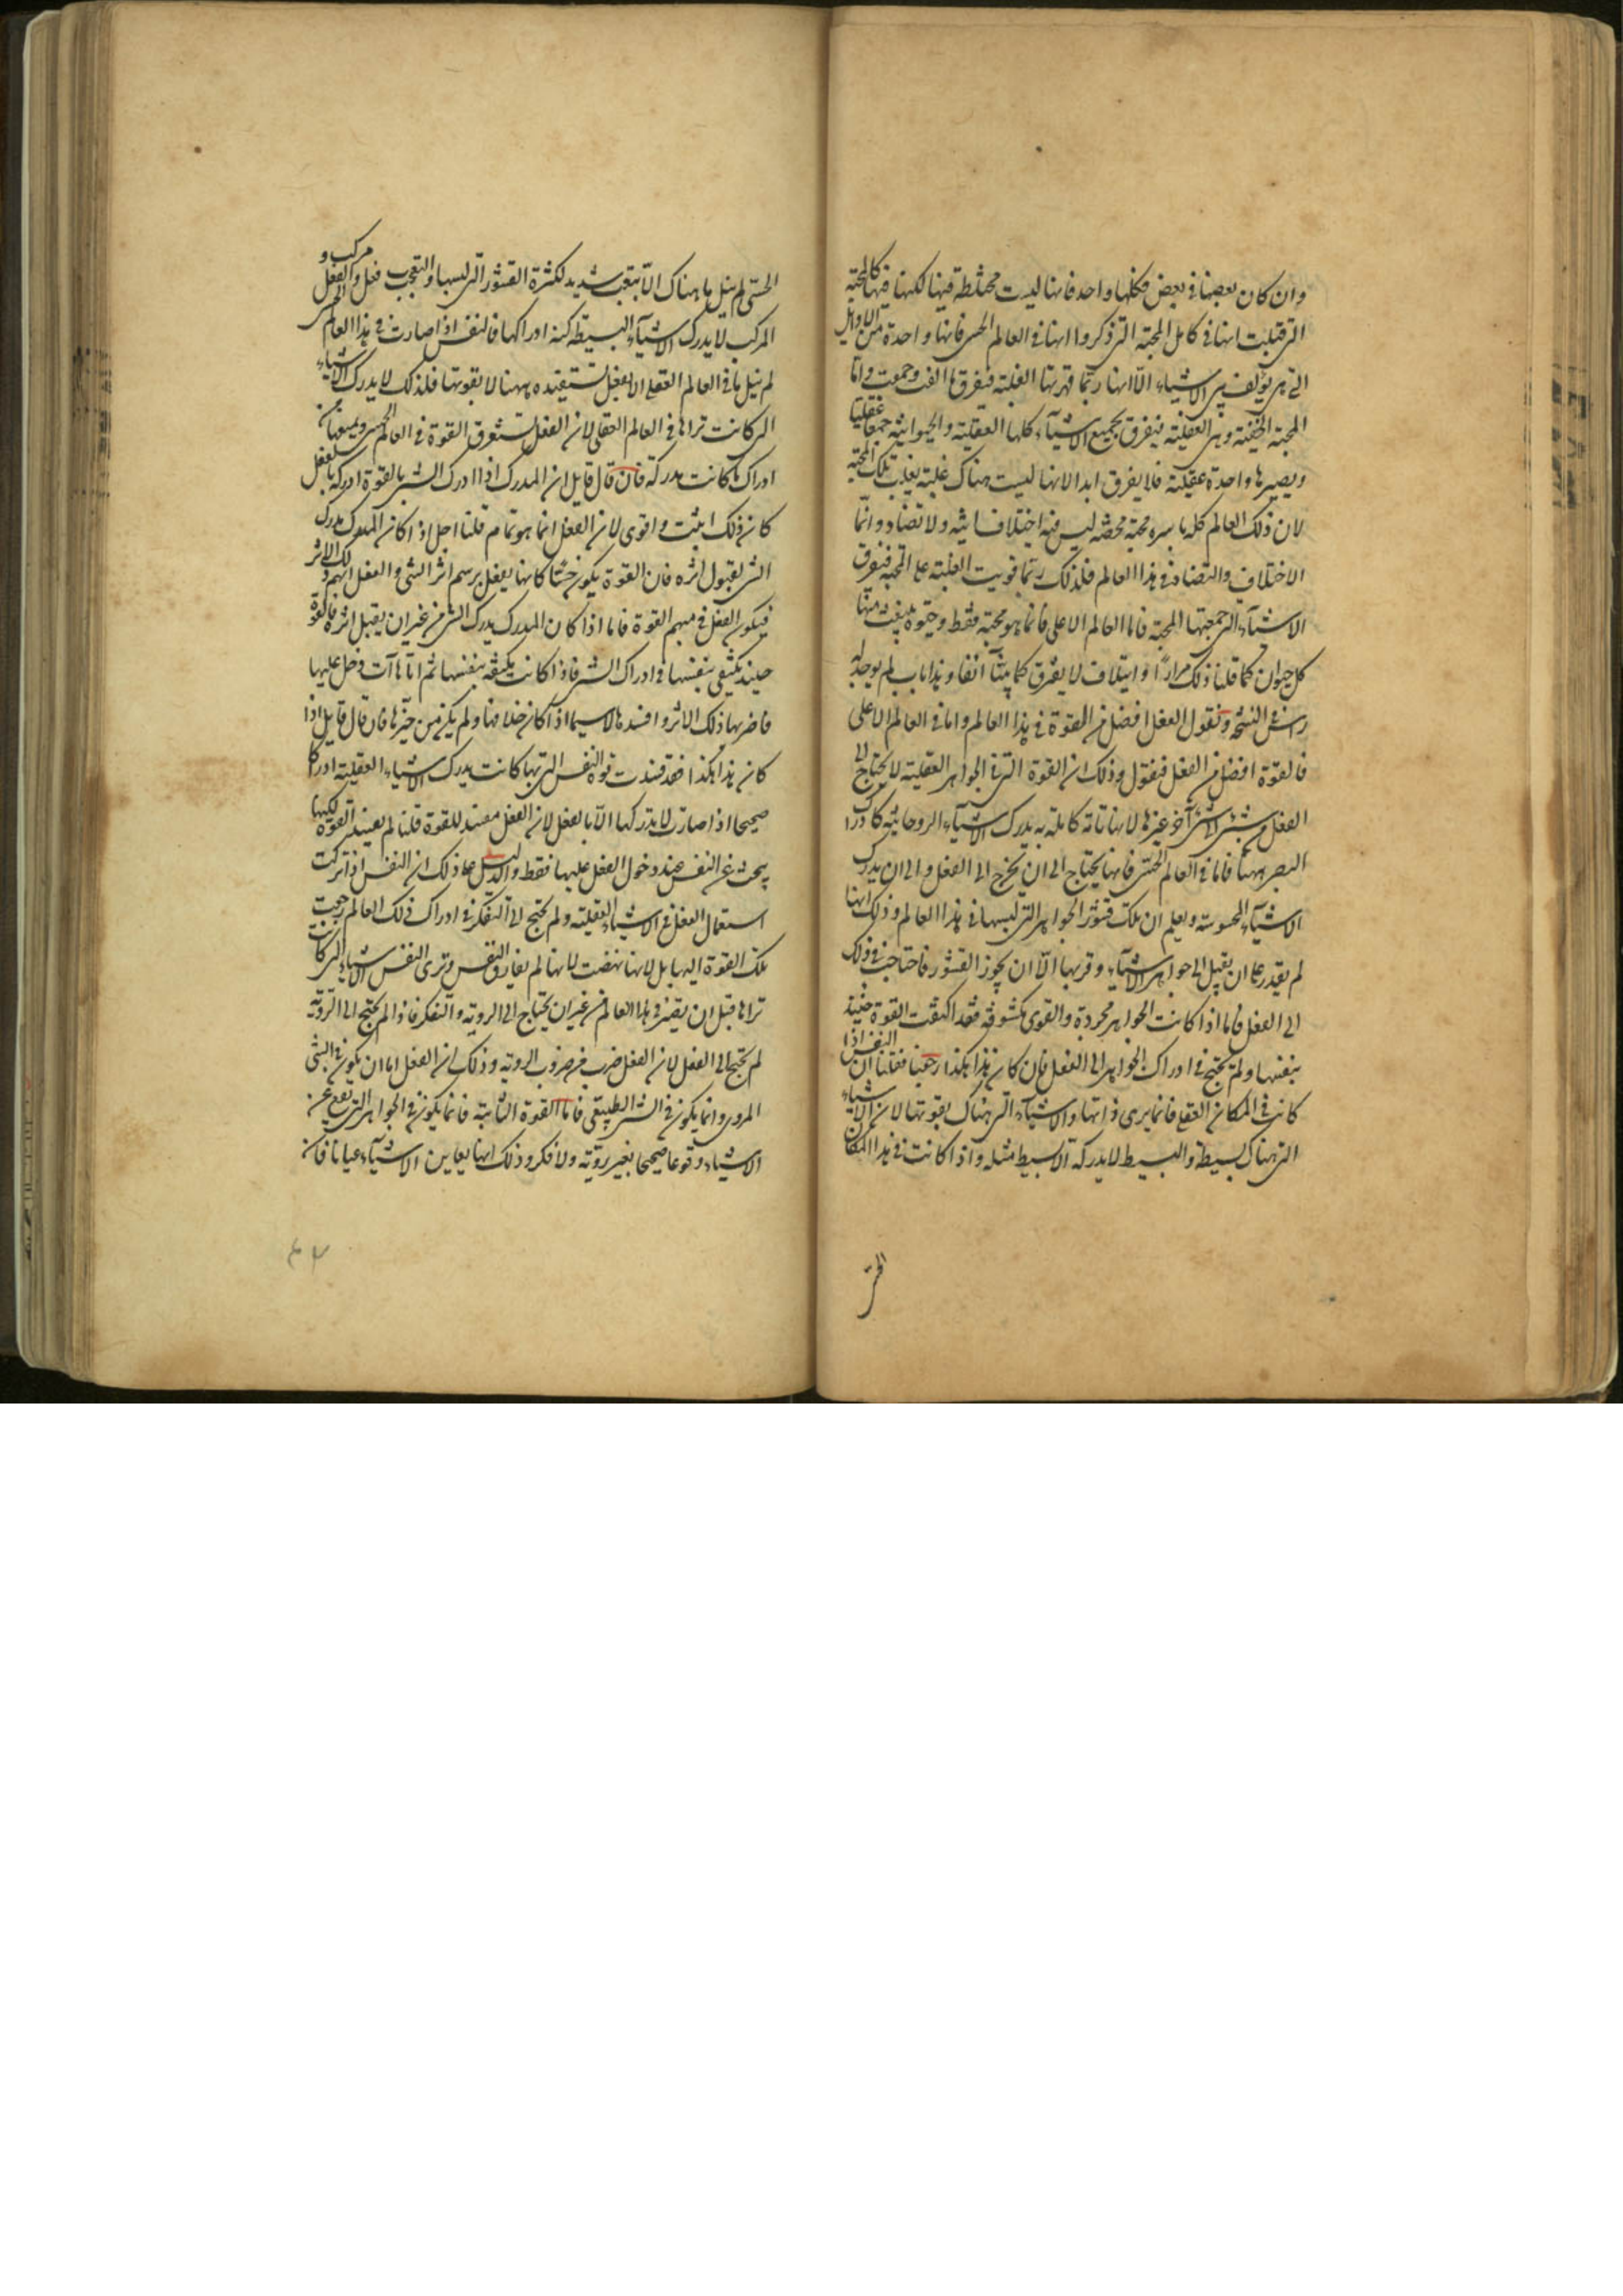 وان كان بعضها فى بعض فكلها واحد فانها ليست مختلطة فيها لكنها فيها كالمحبة
التى قيلت انها فى كامل المحبة التى ذكروا انها فى العالم الحسى فانها واحدة من الاوايل
التى هى يؤلف بين الاشياء الّا انها ربّما قهرتها الغلبة فيفرق ما الفت وجمعت وامّا
المحبة الحقيّة وهى العقلية فيفرق بجميع الاشيآء كلها العقلية والحيوانية جمعا عقليا
ويصيرها واحدة عقلية فلا يفرق ابدا لانها ليست هناك غلبة يغلب تلك المحبة
لان ذلك العالم كله باسره محبة محضه ليس فيه اختلاف البتة ولا تضاد وانّما
الاختلاف والتضاد فى هذا العالم فلذلك ربّما قويت الغلبة على المحبة فيفرق
الاشيآء التى جمعتها المحبة فاما العالم الاعلى فانما هو محبة فقط وحيوة ينبعث منها
كل حيوان كما قلنا ذلك مرارًا وايتلاف لا يفترق كما بينّا آنفا وهذا باب لم يوجد له
راس فى النسخة ونقول الفعل افضل من القوة فى هذا العالم واما فى العالم الاعلى
فالقوّة افضل من الفعل فنقول وذلك ان القوة التى فى الجواهر العقلية لا يحتاج الى
الفعل من شئ الى شئ آخر غيرها لانها تامة كاملة به يدرك الاشيآء الروحانية كادراك
البصر ههنا فاما فى العالم الحسّى فانها يحتاج الى ان يخرج الى الفعل والى ان يدرك
الاشيآء المحسوسة وليعلم ان تلك قشور الجواهر التى لبسها فى هذا العالم وذلك انها
لم يقدر على ان يقبل الى جواهر الاشيآء وقربها الّا ان يجوز القشور فاحتاجت فى ذلك
الى الفعل فاما اذا كانت الجواهر مجردة والقوى مكشوفة فقد اكتفت القوة حينئذ
بنفسها ولم يحتج فى ادراك الجواهر الى الفعل فان كان هذا هكذا رجعنا فقلنا ان النفس اذا
كانت فى المكان العقلى فانما يرى ذاتها والاشيآء التى هناك بقوتها لان الاشياء
التى هناك بسيطة والبسيط لا يدركه الا بسيط مثله واذا كانت فى هذا المكان
الحسّى
الحسّى لم ينل ما هناك الّا بتعب شديد لكثرة القشور التى لبسها والتعب فعل والفعل مركب و
المركب لا يدرك الاشيآء البسيطة كنه ادراكها فالنفس اذا صارت فى هذا العالم الحسى
لم ينل ما فى العالم العقلى الا بفعل تستفيده ههنا لا بقوتها فلذلك لا يدرك الاشياء
التى كانت تراها فى العالم العقلى لان الفعل تستغرق القوة فى العالم الحسى ويمنعها من
ادراك ما كانت مدركه فان قال قايل ان المدرك اذا ادرك الشئ بالقوة ادركه بالفعل
كان ذلك اثبت واقوى لان الفعل انما هو تمام قلنا اجل اذا كان المدرك يدرك
الشئ بقبول اثره فان القوة يكون حسّا كانها يفعل برسم اثر الشئ والفعل يتمم ذلك الاثر
فيكون الفعل متمم القوة فاما اذا كان المدرك يدرك الشئ من غير ان يقبل اثره فالقوة
حينئذ تكتفى بنفسها فى ادراك الشئ فاذا كانت مكتفية بنفسها ثم اتاها آت دخل عليها
فاضر بها ذلك الاثر وافسدها لاسيما اذا كان خلافها ولم يكن من حيّزها فان قال قايل اذا
كان هذا هكذا فقد فسدت قوة النفس التى بها كانت يدرك الاشياء العقلية ادراكا
صحيحا اذا صارت لا يدركها الّا بالفعل لان الفعل مفسد للقوة قلنا لم يفسد القوة لكنها
ينحّت عن النفس عند دخول الفعل عليها فقط والدليل على ذلك ان النفس اذا تركت
استعمال الفعل فى الاشياء العقلية ولم يحتج الى التفكر فى ادراك ذلك العالم رجعت
تلك القوة اليها بل لانها نهضت لانها لم يفارق النفس وترى النفس الاشياء التى كانت
تراها قبل ان يصير فى هذا العالم من غير ان يحتاج الى الروية والتفكر فاذا لم يحتج الى الروية
لم يحتج الى الفعل لان الفعل ضرب من ضروب الروية وذلك ان الفعل اما ان يكون فى الشئ
المروى وانما يكون فى الشئ الطبيعى فاما القوة الثابتة فانما يكون فى الجواهر التى يقع على
الاشياء وقوعا صحيحا بغير روية ولا فكر وذلك انها يعاين الاشيآء عيانا فان